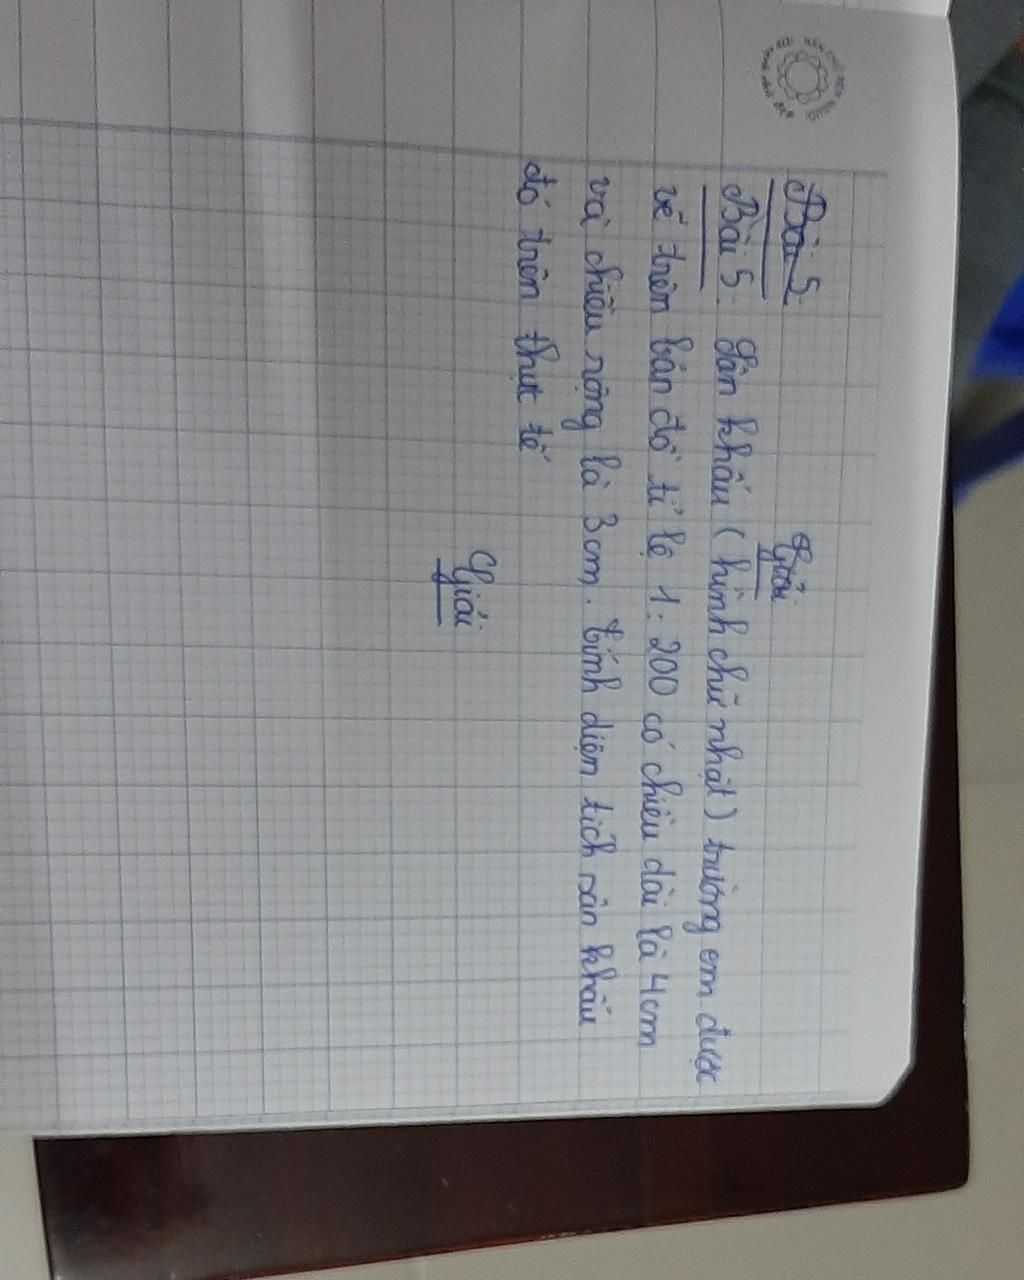 Bài 5
Giải
Bài 5: Sân khấu (hình chữ nhật) trường em được
vẽ trên bản đồ tỉ lệ 1: 200 có chiều dài là 4cm
và chiều rộng là 3cm. tính diện tích sân khấu
đó trên thực tế
Giải